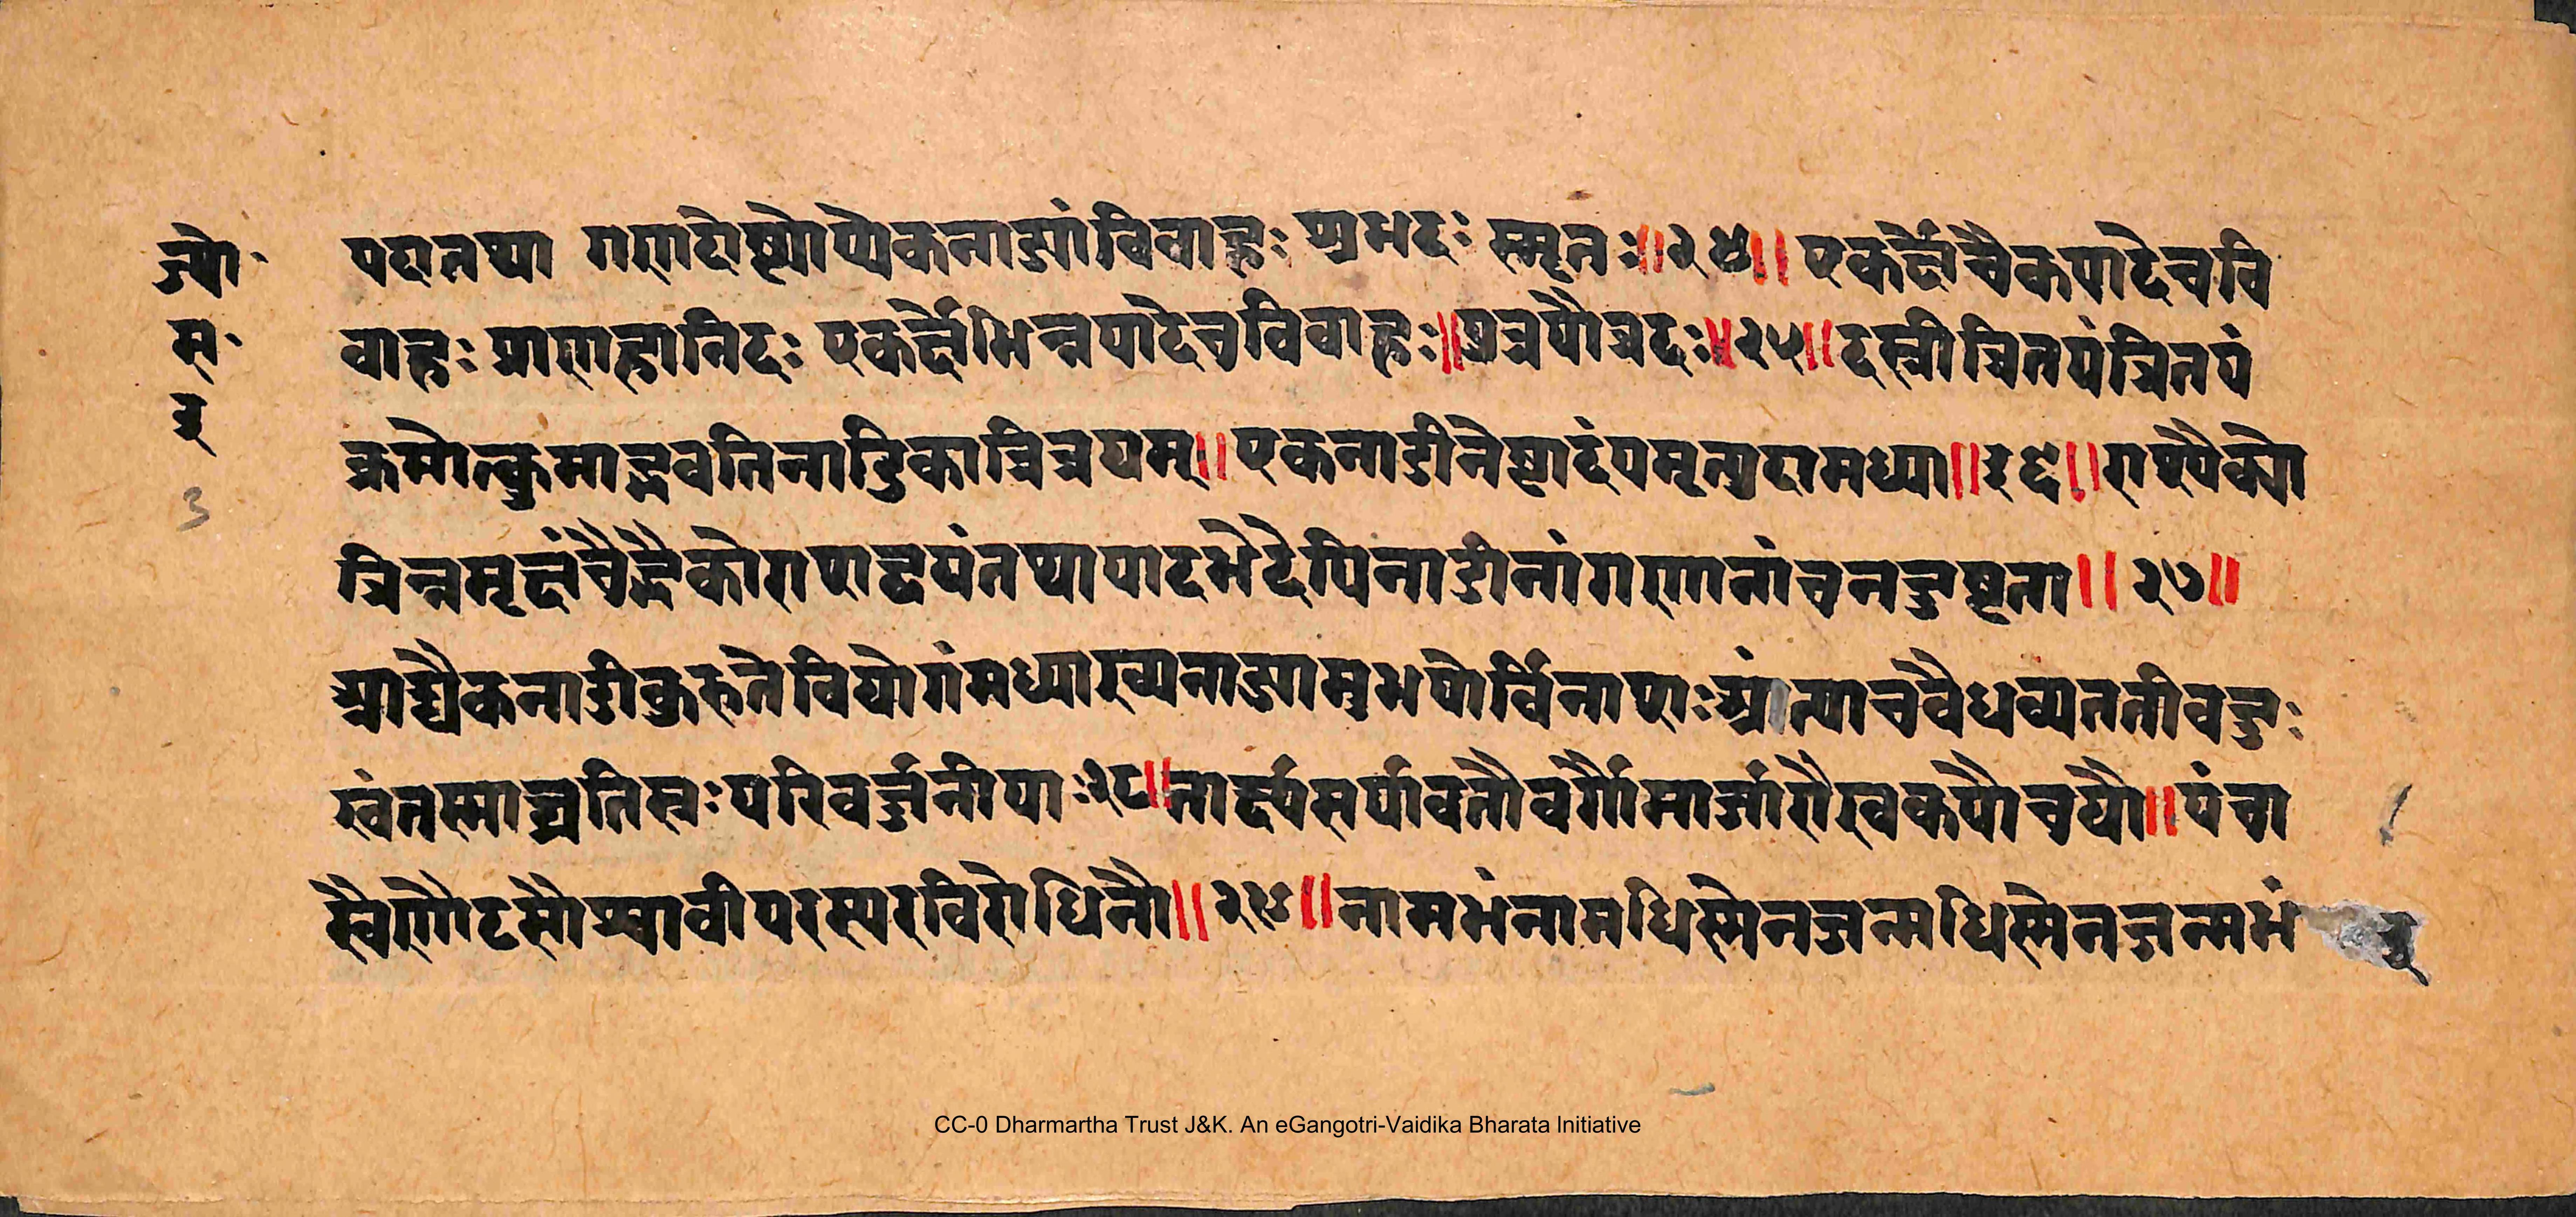 ज्यो॰
स॰
३
3
यदातथा गणदोषोप्येकनाड्यांविवाहः प्रभदः स्मृतः॥२४॥ एकर्क्षेचैकपादेचवि
वाहः प्राणहानिदः एकर्क्षेभिन्नपादेचविवाहः॥पुत्रपौत्रदः॥२५॥ दस्त्रीत्रितयंत्रितयं
क्रमोत्क्रमाद्भवतिनाडिकात्रित्रयम्॥एकनाडीनेष्टादंपमृत्युदामध्या॥२६॥राश्यैक्ये
भिन्नमृक्षंचैद्वैकोराश्पद्वयंतथापादभेदेपिनाडीनांगणानांचनदुष्टता॥२७॥
प्राद्यैकनाडीकुरुतेवियोगंमध्याख्यनाड्यामुभयोर्विनाशःअंत्याचवैधव्यततीवदुः
खंतस्माच्चतिस्त्रःपरिवर्ज्जनीयाः२८॥नार्क्ष्यसर्पावतौवर्गौमार्जारौखकपौचयौ॥यंचा
स्वैणौटसौश्वावीपरस्परविरोधिनौ॥२९॥नामभंनामधिस्मेनजन्मधिस्मेनजन्मभं
३
CC-0 Dharmartha Trust J&K. An eGangotri-Vaidika Bharata Initiative